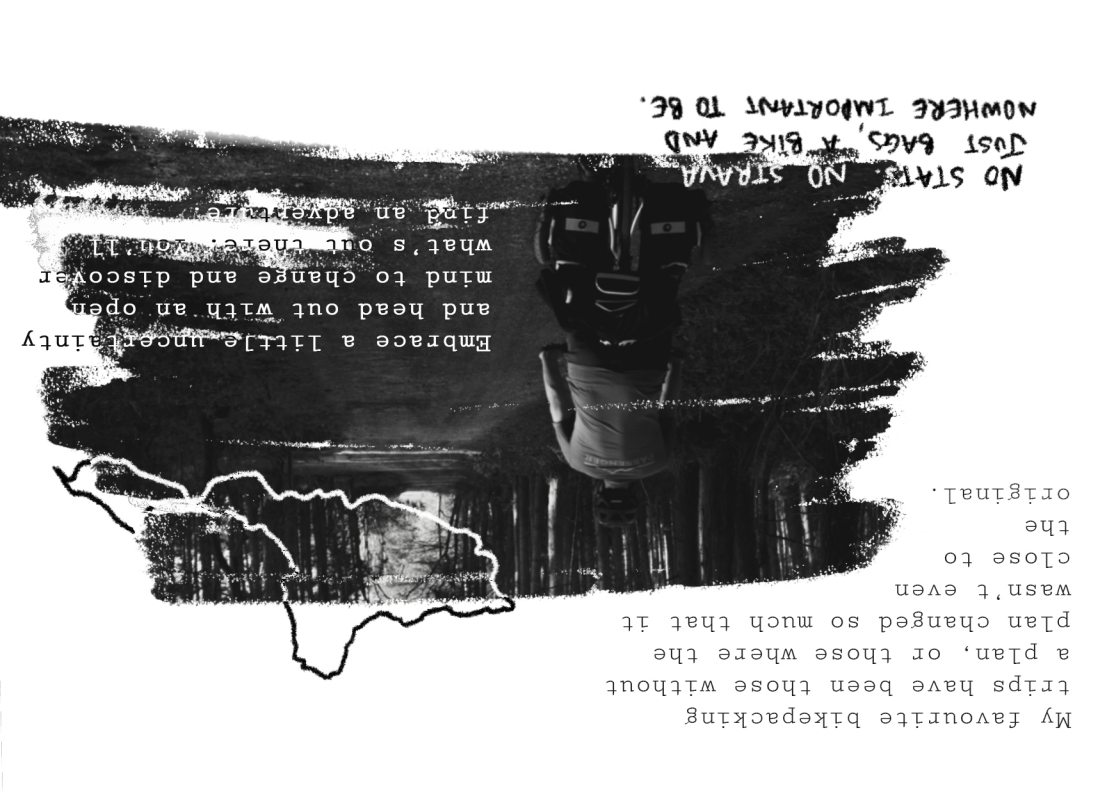 My favourite bikepacking
trips have been those without
a plan, or those where the
plan changed so much that it
wasn't even
close to
the
original.
Embrace a little uncertainty
and head out with an open
mind to change and discover
what's out there. You'll
find an adventure.
NO STATS. NO STRAVA
JUST BAGS, A BIKE AND
NOWHERE IMPORTANT TO BE.